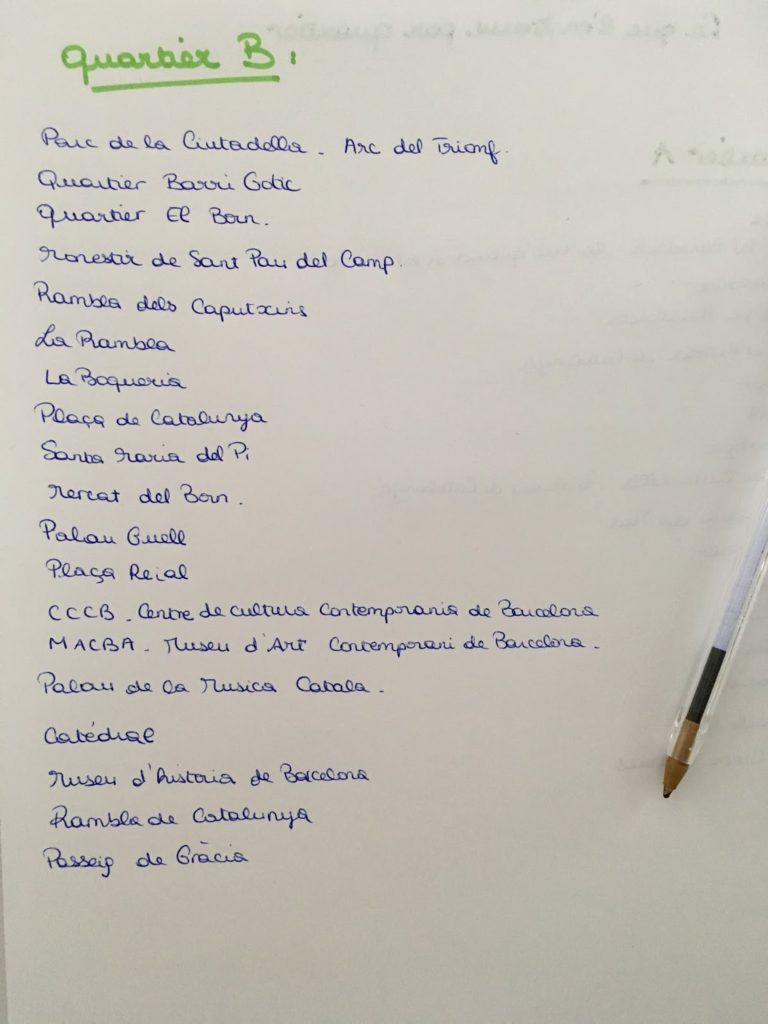 Quartier B :
Parc de la Ciutadella - Arc del Trionf.
Quartier Barri Gotic
Quartier El Born.
Monestir de Sant Pau del Camp.
Rambla dels Caputxins
La Rambla
La Boqueria
Plaça de Catalunya
Santa Maria del Pi
Mercat del Born.
Palau Guell
Plaça Reial
CCCB - Centre de cultura Contemporania de Barcelona
MACBA - Museu d'Art Contemporani de Barcelona.
Palau de la Musica Catala.
Catédral
Museu d'historia de Barcelona
Rambla de Catalunya
Passeig de Gràcia